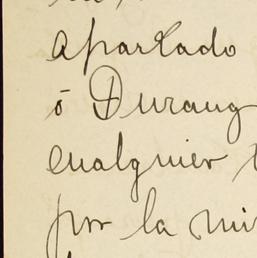 apartado
ó Durang
cualquier t
por la mi